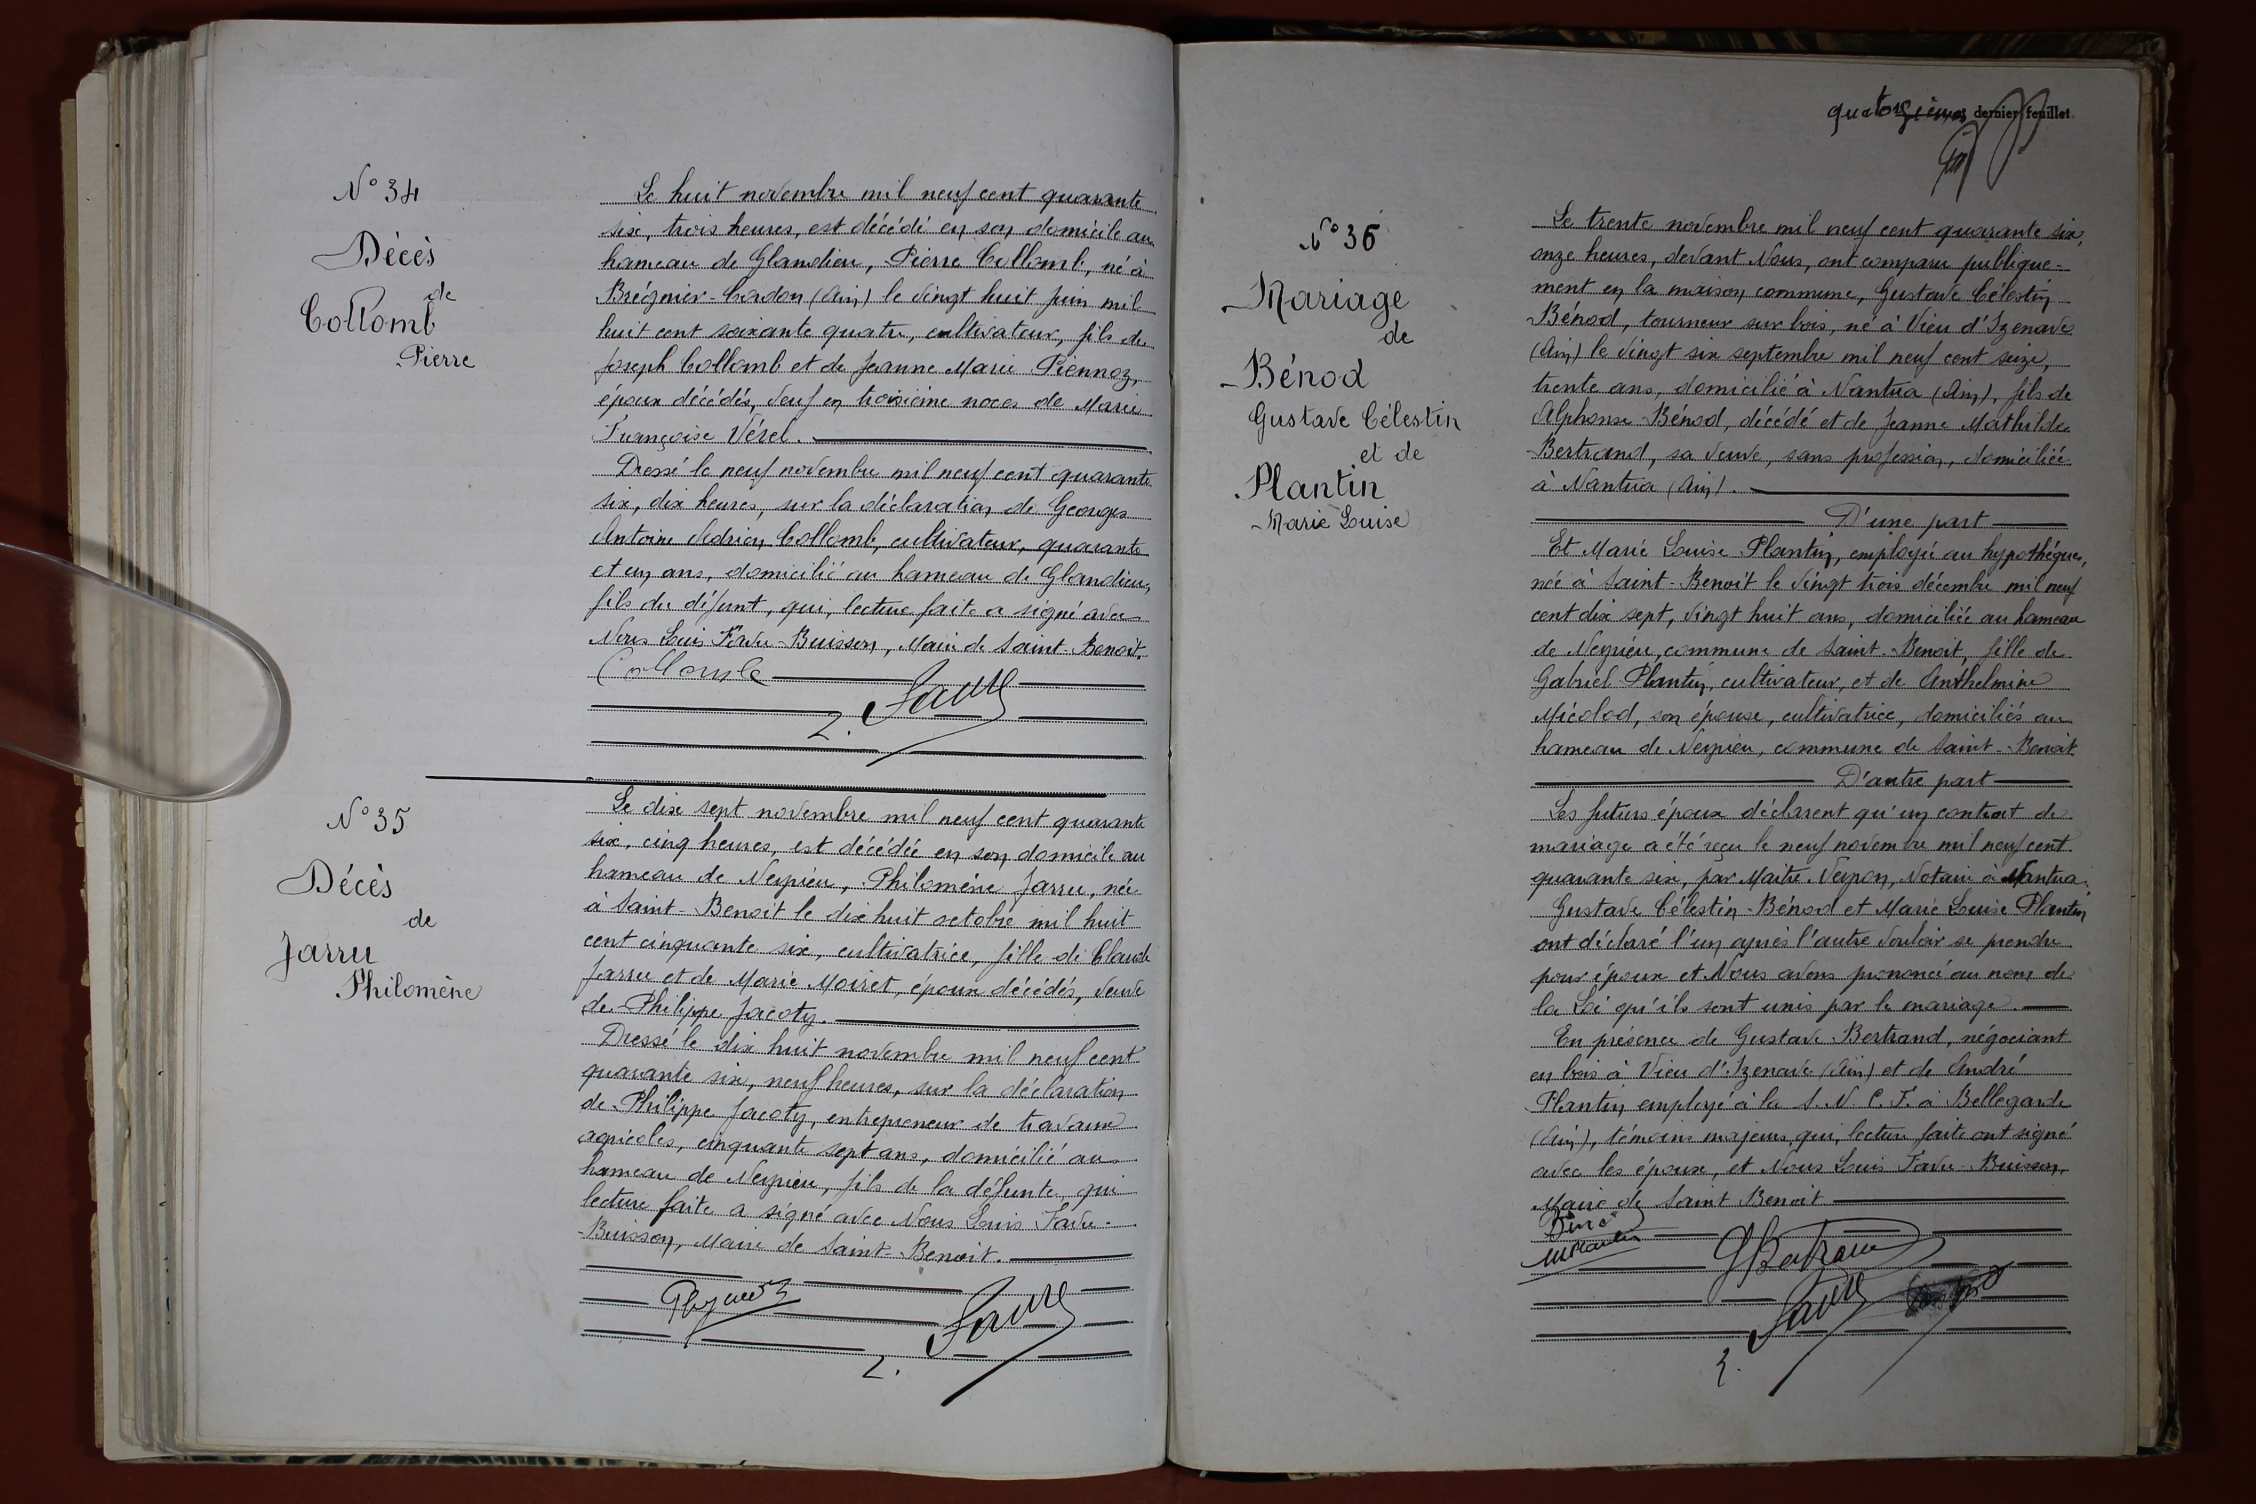 N° 34
Décès
de
Collomb
Pierre
Le huit novembre mil neuf cent quarante
six, trois heures, est décédé en son domicile au
hameau de Glandieu, Pierre Collomb, né à
Brégnier-Cordon (Ain) le vingt huit juin mil
huit cent soixante quatre, cultivateur, fils de
Joseph Collomb et de Jeanne Marie Piennoz,
époux décédés, veuf en troisième noces de Marie
Françoise Vérel.
Dressé le neuf novembre mil neuf cent quarante
six, dix heures, sur la déclaration de Georges
Antoine Adrien Collomb, cultivateur, quarante
et un ans, domicilié au hameau de Glandieu,
fils du défunt, qui, lecture faite a signé avec
Nous Louis Favre-Buisson, Maire de Saint-Benoit.
Collomb
L. Favre
N° 35
Décès
de
Jarru
Philomène
Le dix sept novembre mil neuf cent quarante
six, cinq heures, est décédée en son domicile au
hameau de Neyrieu, Philomène Jarru, née
à Saint-Benoit le dix huit octobre mil huit
cent cinquante six, cultivatrice, fille de Claude
Jarru et de Marie Moiret, époux décédés, veuve
de Philippe Jacoty.
Dressé le dix huit novembre mil neuf cent
quarante six, neuf heures, sur la déclaration
de Philippe Jacoty, entrepreneur de travaux
agricoles, cinquante sept ans, domicilié au
hameau de Neyrieu, fils de la défunte, qui
lecture faite a signé avec Nous Louis Favre-
Buisson, Maire de Saint-Benoit.
L. Favre
quatorzième dernier feuillet.
N° 36
Mariage
de
Bénod
Gustave Célestin
et de
Plantin
Marie Louise
Le trente novembre mil neuf cent quarante six,
onze heures, devant Nous, ont comparu publique-
ment en la maison commune, Gustave Célestin
Bénod, tourneur sur bois, né à Vieu d'Izenave
(Ain) le vingt six septembre mil neuf cent seize,
trente ans, domicilié à Nantua (Ain), fils de
Alphonse Bénod, décédé et de Jeanne Mathilde
Bertrand, sa veuve, sans profession, domiciliée
à Nantua (Ain).
D'une part
Et Marie Louise Plantin, employée au hypothéques,
née à Saint-Benoit le vingt trois décembre mil neuf
cent dix sept, vingt huit ans, domiciliée au hameau
de Neyrieu, commune de Saint-Benoit, fille de
Gabriel Plantin, cultivateur, et de Anthelmine
Micolod, son épouse, cultivatrice, domiciliés au
hameau de Neyrieu, commune de Saint-Benoit
D'autre part
Les futurs époux déclarent qu'un contrat de
mariage a été reçu le neuf novembre mil neuf cent
quarante six, par Maitre Neyron, Notaire à Nantua.
Gustave Célestin Bénod et Marie Louise Plantin
ont déclaré l'un après l'autre vouloir se prendre
pour époux et Nous avons prononcé au nom de
la Loi qu'ils sont unis par le mariage.
En présence de Gustave Bertrand, négociant
en bois à Vieu d'Izenave (Ain) et de André
Plantin employé à la S. N. C. F. à Bellegarde
(Ain), témoins majeurs, qui, lecture faite ont signé
avec les époux, et Nous Louis Favre-Buisson,
Maire de Saint Benoit
Bénod
MPlantin
GBertrand
L. Favre